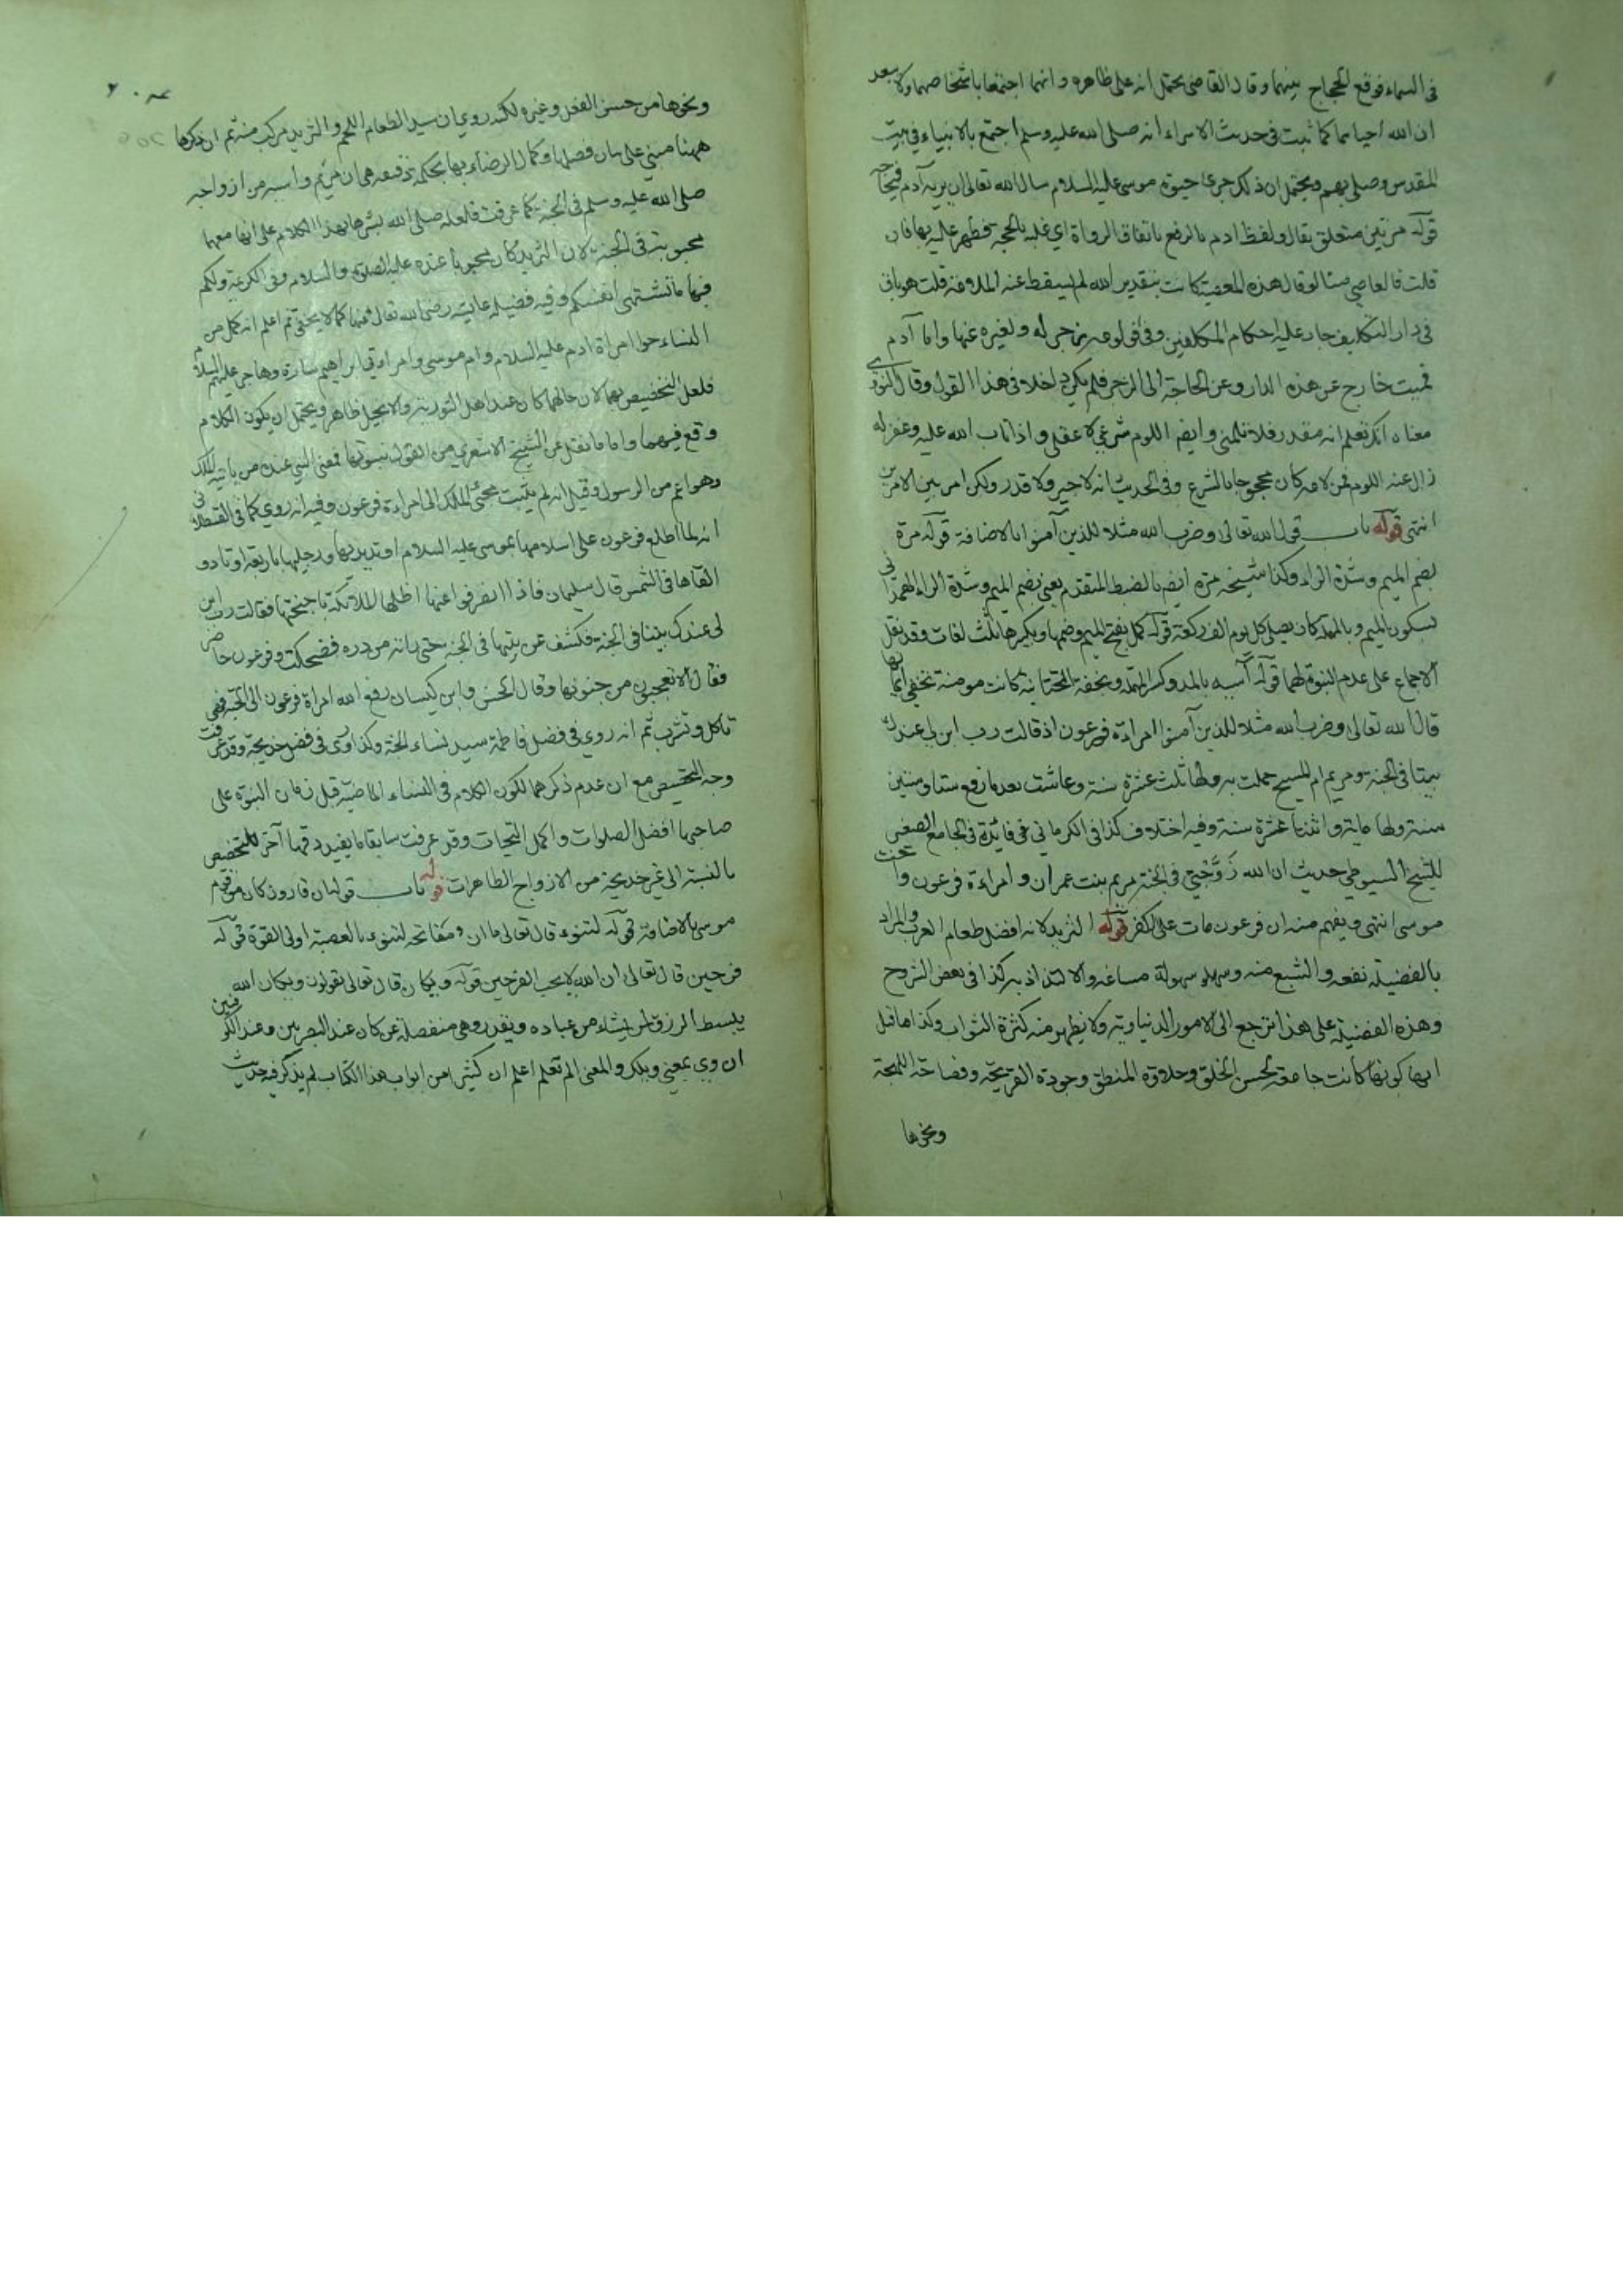 فى السماء فوقع الحجاج بينهما وقال القاضى يحتمل انه على ظاهره وانهما اجتمعا باشخاصهما ولا يبعد
ان الله احياهما كما ثبت فى حديث الاسراء انه صلى الله عليه وسلم اجتمع بالانبياء فى بيت
المقدس وصلى بهم ويحتمل ان ذلك جرى فى حيوة موسى عليه السلام سال الله تعالى ان يريه آدم فيحاجه
قوله مرتين متعلق بقال ولفظ ادم بالرفع باتفاق الرواة اي غلبه بالحجة فظهر عليه بها فان
قلت فالعاصي منا لو قال هذه المعصية كانت بتقدير الله لم يسقط عنه الملامة قلت هو باق
فى دار التكليف جار عليه احكام المكلفين وفى لومه زجر له ولغيره عنها واما آدم
فميت خارج عن هذه الدار وعن الحاجة الى الزجر فلم يكن داخلا فى هذا القول وقال النووي
معناه انك تعلم انه مقدر فلا تلمنى وايضا اللوم شرعي لا عقلي واذا تاب الله عليه وغفر له
زال عنه اللوم فمن لامه كان محجوجا بالشرع وفى الحديث انه لا جبر ولا قدر ولكن امر بين الامرين
انتهى قوله باب قول الله تعالى وضرب الله مثلا للذين آمنوا بالاضافة قوله مرة
بضم الميم وشدة الراء وكذا شيخه مرة ايضا بالضبط المتقدم يعنى بضم الميم وشدة الراء الهمدانى
بسكون الميم وبالمهملة كان يصلى كل يوم الف ركعة قوله كمل بفتح الميم وضمها وبكسرها ثلث لغات وقد نقل
الاجماع على عدم النبوة لهما قوله آسيه بالمد وكسر المهملة وبخفة التحتانية كانت مومنة تخفي ايمانها
قال الله تعالى وضرب الله مثلا للذين آمنوا امراءة فرعون اذ قالت رب ابن لى عندك
بيتا فى الجنة ومريم ام المسيح حملت به ولها ثلث عشرة سنة وعاشت بعد ما رفع ستا وستين
سنة ولها ماية واثنتا عشرة سنة وفيه اختلاف كذا فى الكرمانى فايدة فى الجامع الصغير
للشيخ السيوطي حديث ان الله زوجنى فى الجنة مريم بنت عمران وامراءة فرعون واخت
موسى انتهى ويفهم منه ان فرعون مات على الكفر قوله الثريد لانه افضل طعام العرب والمراد
بالفضيلة نفعه والشبع منه وسهولة مساغه والالتذاذ به كذا فى بعض الشروح
وهذه الفضيلة على هذا ترجع الى الامور الدنياوية ولا يظهر منه كثرة الثواب وكذا ما قيل
انها كونها كانت جامعة لحسن الخلق وحلاوة المنطق وجودة القريحة وفصاحة اللهجة
ونحوها
ونحوها من حسن الفعل وغيره لكنه روي ان سيد الطعام اللحم والثريد مركب منه ثم ان ذكرها
ههنا مبني على بيان فضلها وكمال الرضاء بها هى ان مريم واسيه من ازواجه
صلى الله عليه وسلم فى الجنة كما عرفت فلعله صلى الله بشرها بهذا الكلام على انها معهما
محبوبته فى الجنة لان الثريد كان محبوبا عنده عليه الصلوة والسلام وفى الكريمة ولكم
فيها ما تشتهى انفسكم وفيه فضيلة عايشة رضى الله تعالى عنها كما لا يخفى ثم اعلم انه كمل من
النساء حوا امراة ادم عليه السلام وام موسى وامراءتى ابراهيم سارة وهاجر عليهم السلام
فلعل التخصيص بهما لان حالهما كان عند اهل التورية والانجيل ظاهر ويحتمل ان يكون الكلام
وقع فيهما واما ما نقل عن الشيخ الاشعري من القول بنبوتها فمعنى النبي عنده من ياتيه الملك
وهو اعم من الرسول وقيل انه لم يثبت مجئ الملك الى امراءة فرعون وفيه انه روي كما فى القسطلانى
انه لما اطلع فرعون على اسلامها بموسى عليه السلام اوتد يديها ورجليها باربعة اوتاد و
القاها فى الشمس قال سليمان فاذا انصرفوا عنها اظلها الملائكة باجنحتها فقالت رب ابن
لى عندك بيتا فى الجنة فكشف عن بيتها فى الجنة حتى راته من دره فضحكت وفرعون حاضر
فقال الا تعجبون من جنونها وقال الحسن وابن كيسان رفع الله امراة فرعون الى الجنة فهى
تاكل وتشرب ثم انه روي فى فضل فاطمة سيدة نساء الجنة وكذا روى فى فضل خديجة وقد عرفت
وجه التخصيص مع ان عدم ذكرهما لكون الكلام فى النساء الماضية قبل زمان النبوة على
صاحبها افضل الصلوات واكمل التحيات وقد عرفت سابقا ما يفيد وجها آخر للتخصيص
بالنسبة الى غير خديجة من الازواج الطاهرات قوله باب قوله ان قارون كان من قوم
موسى بالاضافة قوله لتنوء قال تعالى ما ان مفاتحه لتنوء بالعصبة اولى القوة قوله
فرحين قال تعالى ان الله لا يحب الفرحين قوله ويكان قال تعالى يقولون ويكان الله
يبسط الرزق لمن يشاء من عباده ويقدر وهى منفصلة عن كان عند البصريين وعند الكوفيين
ان وي بمعنى ويلك والمعنى الم تعلم اعلم ان كثيرا من ابواب هذا الكتاب لم يذكر فيه حديث